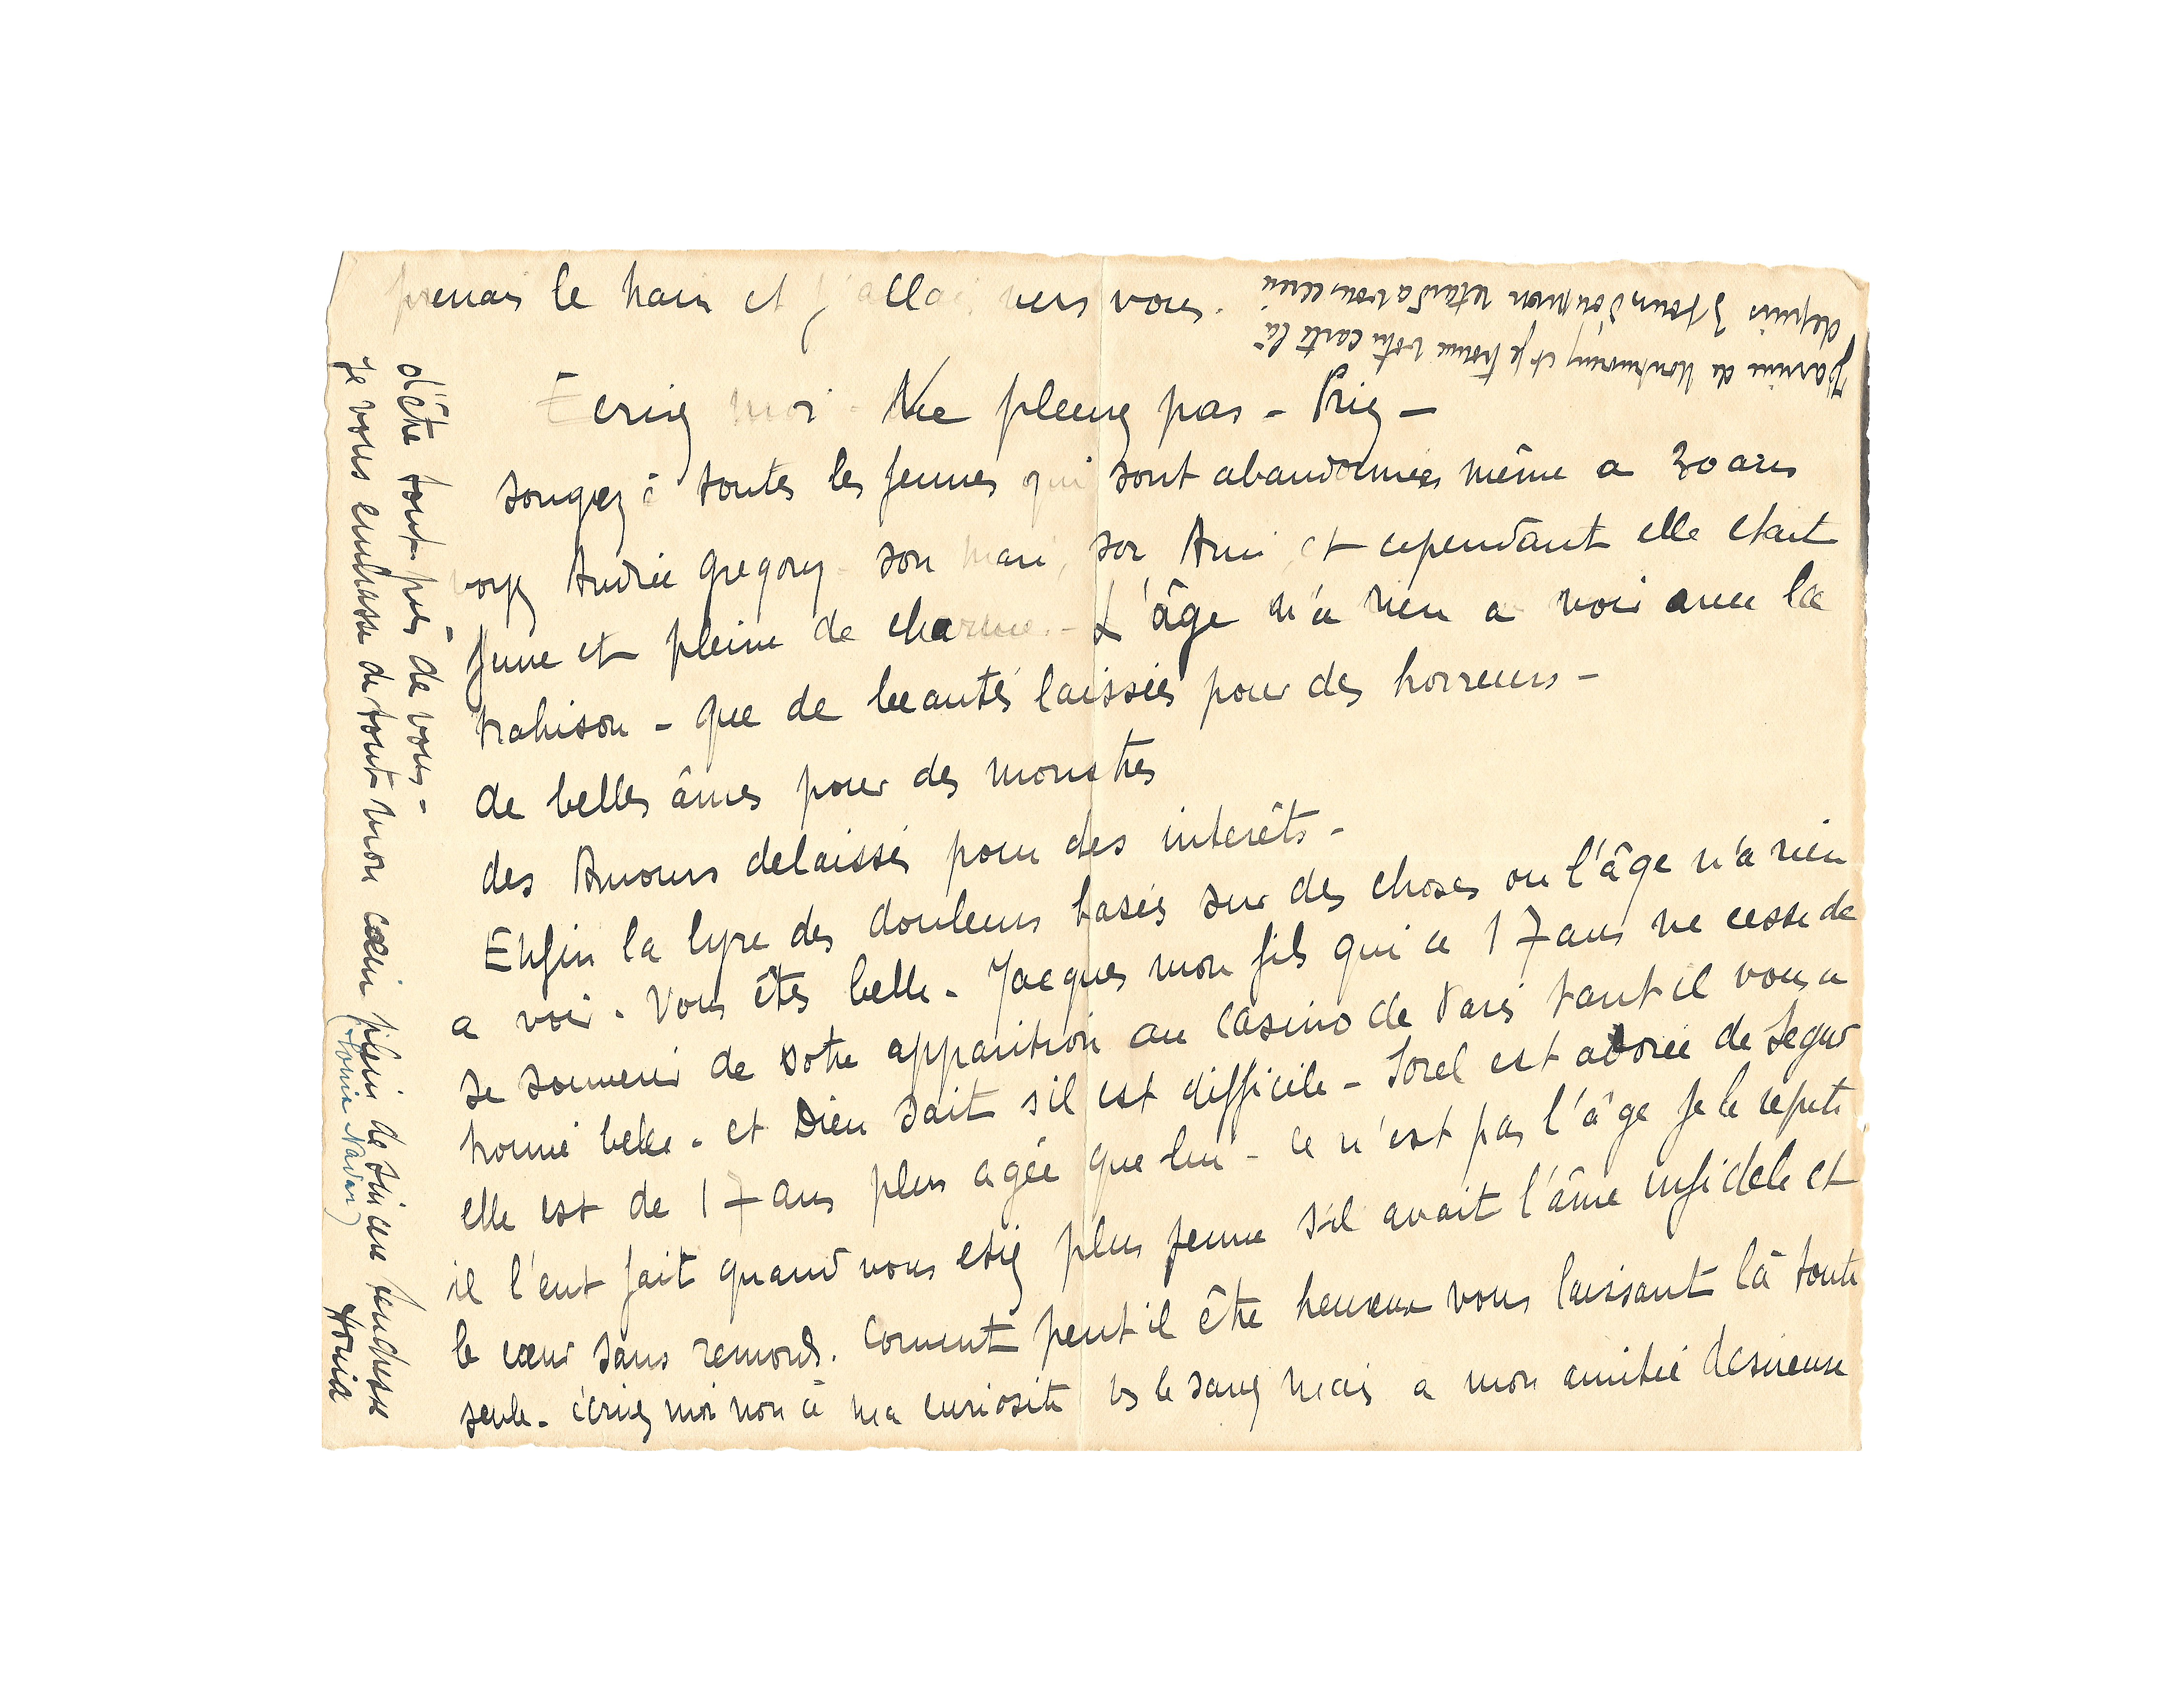 prenais le train et j'allais vers vous.
Ecrivez moi - Ne pleurez pas - Priez -
songez à toutes les femmes qui sont abandonnées même a 30 ans
voyez Andrée Gregory - son mari, son Ami, et cependant elle etait
jeune et pleine de charme. - L'âge n'a rien a voir avec la
trahison - que de beautés laissées pour des horreurs -
de belles âmes pour des monstres
des Amours delaissés pour des interêts -
Enfin la lyre des douleurs basées sur des choses ou l'âge n'a rien
a voir. Vous êtes belle - Jacques mon fils qui a 17 ans ne cesse de
se souvenir de votre apparition au Casino de Paris tant il vous a
trouvé belle - et Dieu sait s'il est difficile - Sorel est adorée de Segur
elle est de 17 ans plus agée que lui - ce n'est pas l'âge je le repete
il l'eut fait quand vous etiez plus jeune s'il avait l'âme infidele et
le cœur sans remords. Coment peut il être heureux vous laissant là toute
seule - écrivez moi non à ma curiosité vs le savez mais a mon amitié desireuse
d'être tout près de vous -
Je vous embrasse de tout mon cœur plein de sincere tendresse
(Tonia Navar)
Tonia
J'arrive de Montmorency et je trouve votre carte là
depuis 3 jours d'où mon retard a vous ecrire